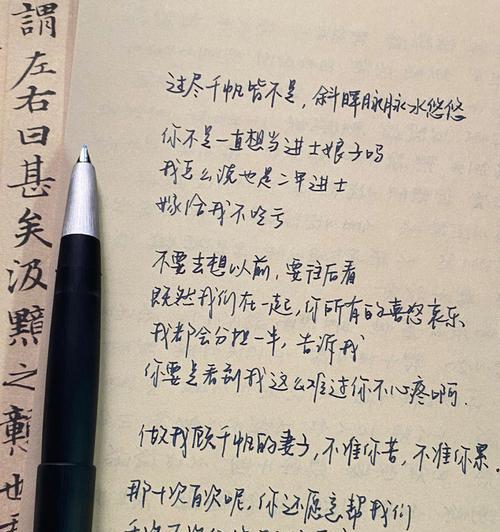 謂左右曰甚矣汲黯之戇也
过尽千帆皆不是，斜晖脉脉水悠悠
你不是一直想当进士娘子吗
我怎么说也是二甲进士
嫁给我不吃亏
不要去想以前，要往后看
既然我们在一起，你所有的喜怒哀乐
我都会分担一半，告诉我
你要是看到我这么难过你不心疼啊.
做我顾千帆的妻子，不准你苦，不准你累.
那十次百次呢，你还愿意帮我们